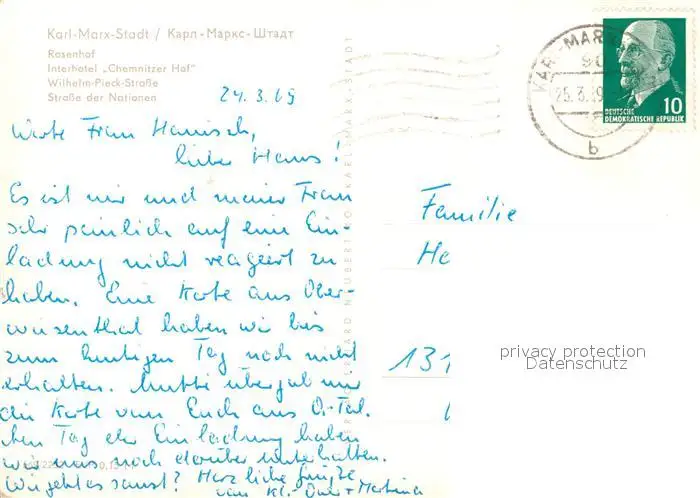 Karl-Marx-Stadt / Карл-Маркс-Штадт
Rosenhof
Interhotel „Chemnitzer Hof"
Wilhelm-Pieck-Straße
Straße der Nationen
24.3.69
Werte Frau Hanisch,
lieber Hans!
Es ist mir und meiner Frau
sehr peinlich auf eine Ein-
ladung nicht reagiert zu
haben. Eine Karte aus Ober-
wiesenthal haben wir bis
zum heutigen Tag noch nicht
erhalten. Mutti übergab mir
die Karte von Euch aus O.-Tal.
den Tag der Einladung haben
wir uns noch darüber unterhalten.
Wie geht es sonst? Herzliche Grüße
von Kl.- + Martina
KARL-MARX-
90
25.3.69
b
10
DEUTSCHE
DEMOKRATISCHE REPUBLIK
Familie
Ha
131
privacy protection
Datenschutz